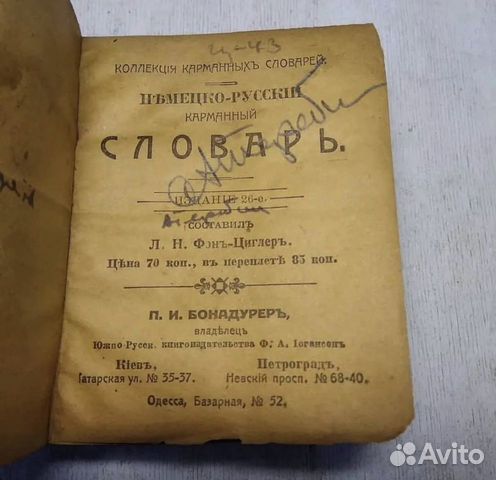 Ц-43
КОЛЛЕКЦІЯ КАРМАННЫХЪ СЛОВАРЕЙ.
НѢМЕЦКО-РУССКІЙ
КАРМАННЫЙ
СЛОВАРЬ.
ИЗДАНІЕ 26-е.
СОСТАВИЛЪ
Л. Н. Фонъ-Циглеръ.
Цѣна 70 коп., въ переплетѣ 85 коп.
П. И. БОНАДУРЕРЪ,
владѣлецъ
Южно-Русск. книгоиздательства Ф. А. Іогансонъ
Кіевъ, Петроградъ,
Татарская ул. № 35-37. Невскій просп. № 68-40.
Одесса, Базарная, № 52.
Avito